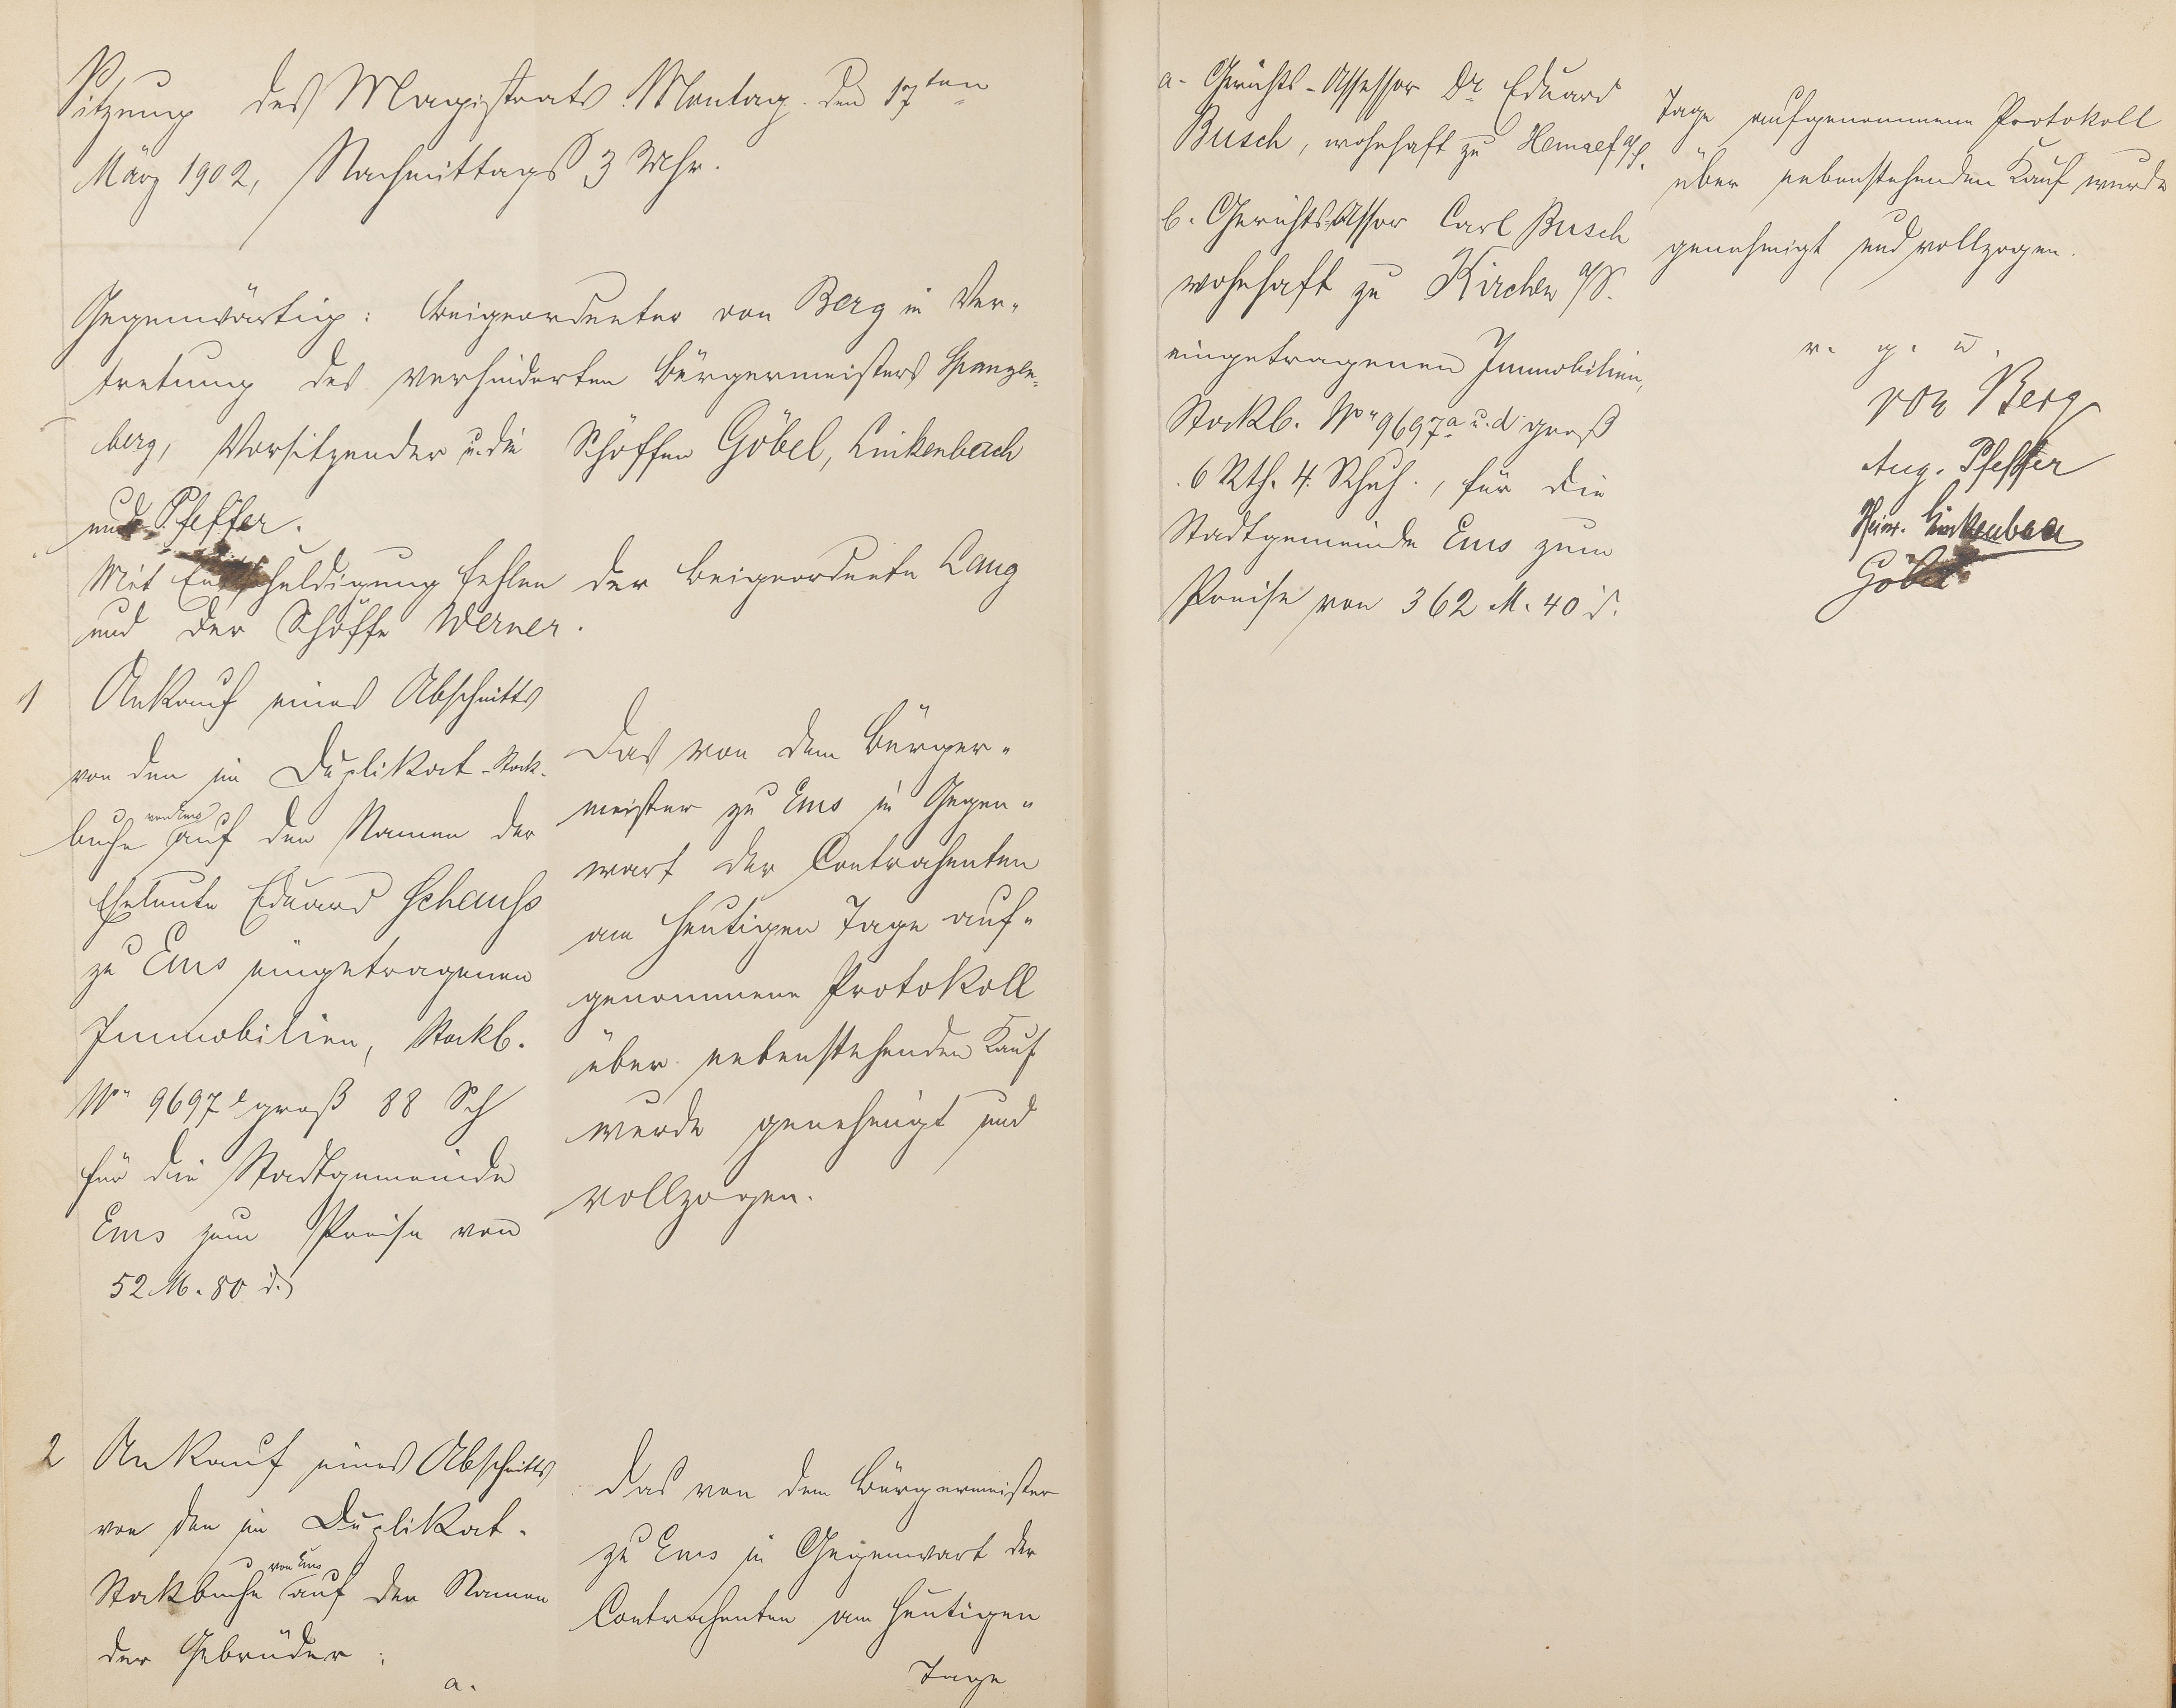 Sitzung des Magistrats Montag den 17ten
März 1902, Nachmittags 3 Uhr.
Gegenwärtig: Beigeordneter von Berg in Ver-
tretung des verhinderten Bürgermeisters Spangen-
berg, Vorsitzender u. die Schöffen Göbel, Linkenbach
und Pfeffer.
Mit Entschuldigung fehlen der Beigeordnete Lang
und der Schöffe Werner.
1 Ankauf eines Abschnitts
von den im Duplikat-Stock-
buche von Ems auf den Namen der
Eheleute Eduard Schauß
zu Ems eingetragenen
Immobilien, Stockb.
No 9697 groß 88 Sch
für die Stadtgemeinde
Ems zum Preise von
52 M. 80 d.
Das von dem Bürger-
meister zu Ems in Gegen-
wart der Contrahenten
am heutigen Tage auf-
genommene Protokoll
über nebenstehenden Kauf
wurde genehmigt und
vollzogen.
2 Ankauf eines Abschnitts
von den im Duplikat-
Stockbuche von Ems auf den Namen
der Gebrüder:
a.
Das von dem Bürgermeister
zu Ems in Gegenwart der
Contrahenten am heutigen
Tage
a. Gerichts-Assessor Dr Eduard
Busch, wohnhaft zu Hennef a/S.
b. Gerichts-Assor Carl Busch
wohnhaft zu Kirchen a/S.
eingetragenen Immobilien,
Stockb. No 9697a u. d groß
6 Rth. 4 Schuh., für die
Stadtgemeinde Ems zum
Preise von 362 M. 40 d.
Tage aufgenommene Protokoll
über nebenstehenden Kauf wurde
genehmigt und vollzogen.
v. g. u.
von Berg
Aug. Pfeffer
Heinr. Linkenbach
Göbel